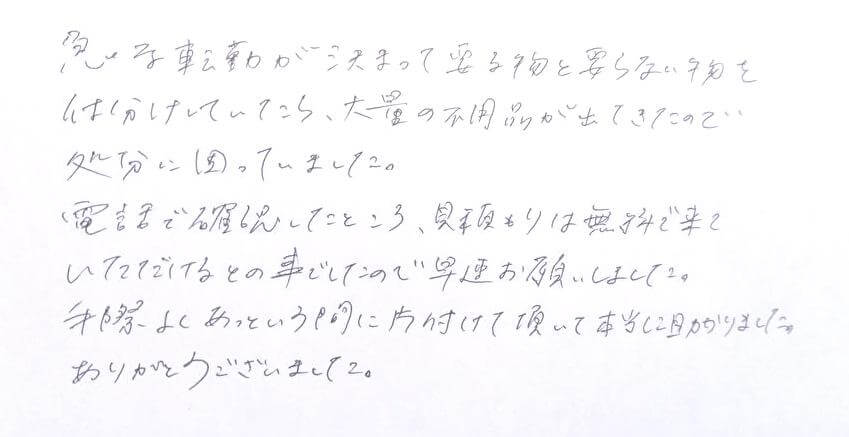 急な転勤が決まって要る物と要らない物を
仕分けしていたら、大量の不用品が出てきたので
処分に困っていました。
電話で確認したところ、見積もりは無料で来て
いただけるとの事でしたので早速お願いしました。
手際よくあっという間に片付けて頂いて本当に助かりました。
ありがとうございました。